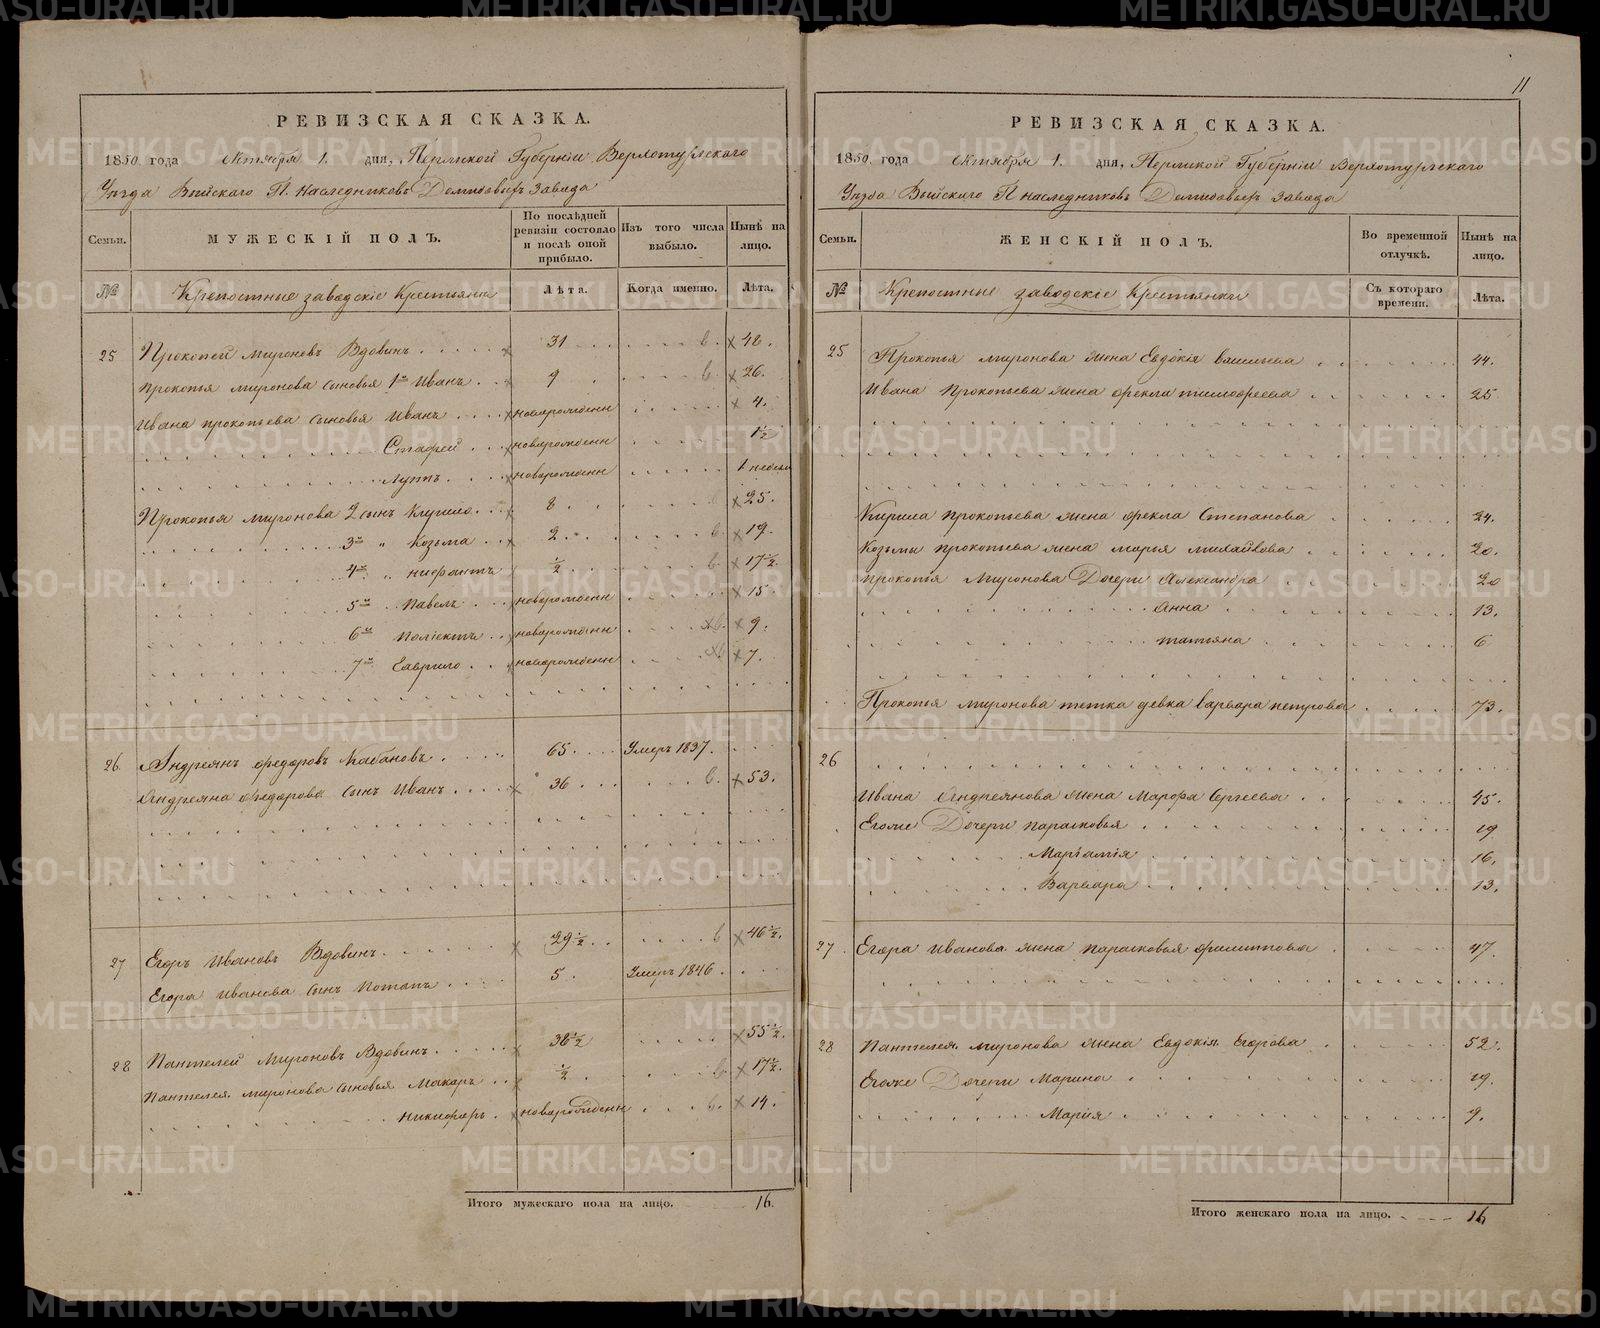 РЕВИЗСКАЯ СКАЗКА.
1850. года октября 1. дня, Пермской Губерніи Верхотурскаго
Уѣзда Выйскаго П. наследниковъ Демидовыхъ завода
Семьи.
МУЖЕСКІЙ ПОЛЪ.
По послѣдней ревизіи состояло и послѣ оной прибыло.
Изъ того числа выбыло.
Нынѣ на лицо.
№ Крепостные заводскіе Крестьяна Лѣта. Когда именно. Лѣта.
25 Прокопей мироновъ Вдовинъ 31 48.
прокопья миронова сыновья 1й Иванъ 9 26.
Ивана прокопьева сыновья Иванъ новорожденн 4.
Стафей новорожденн 1½
Луппъ новорожденн 1 недели
Прокопья миронова 2 сынъ Кирило 8 25.
3й " Козьма 2 19.
4й " нифантъ ½ 17½.
5й Павелъ новорожденн 15.
6й полiектъ новорожденн 9.
7й Гаврило новорожденн 7.
26. Андреянъ федоровъ Кабановъ 65 Умеръ 1837.
Андреяна федорова сынъ Иванъ 36 53.
27 Егоръ Ивановъ Вдовинъ 29½ 46½.
Егора Иванова сынъ Потапъ 5. Умеръ 1846.
28 Пантелей мироновъ Вдовинъ 38½ 55½.
Пантелея миронова сыновья Макаръ ½ 17½.
никифоръ новорожденн 14.
Итого мужескаго пола на лицо. 16.
11
РЕВИЗСКАЯ СКАЗКА.
1850. года октября 1. дня, Пермской Губерніи Верхотурскаго
Уѣзда Выйскаго П наследниковъ Демидовыхъ завода
Семьи.
ЖЕНСКІЙ ПОЛЪ.
Во временной отлучкѣ.
Нынѣ на лицо.
№ Крепостные заводскіе Крестьянки Съ котораго времени. Лѣта.
25 Прокопья миронова жена Евдокія васильева 44.
Ивана прокопьева жена фекла тимофеева 25
Кирила прокопьева жена фекла Степанова 24.
Козьмы прокопьева жена марья михайлова 20.
прокопья миронова Дочери Александра 20
Анна 13.
татьяна 6
Прокопья миронова тетка девка варвара петрова 73.
26
Ивана Андреянова жена Марфа Сергеева 45.
Егоже Дочери парасковья 19
Маріамія 16.
Варвара 13.
27 Егора Иванова жена парасковья филиппова 47.
28 Пантелея миронова жена Евдокія Егорова 52.
Егоже Дочери Марина 19.
Марія 9.
Итого женскаго пола на лицо. 16
METRIKI.GASO-URAL.RU